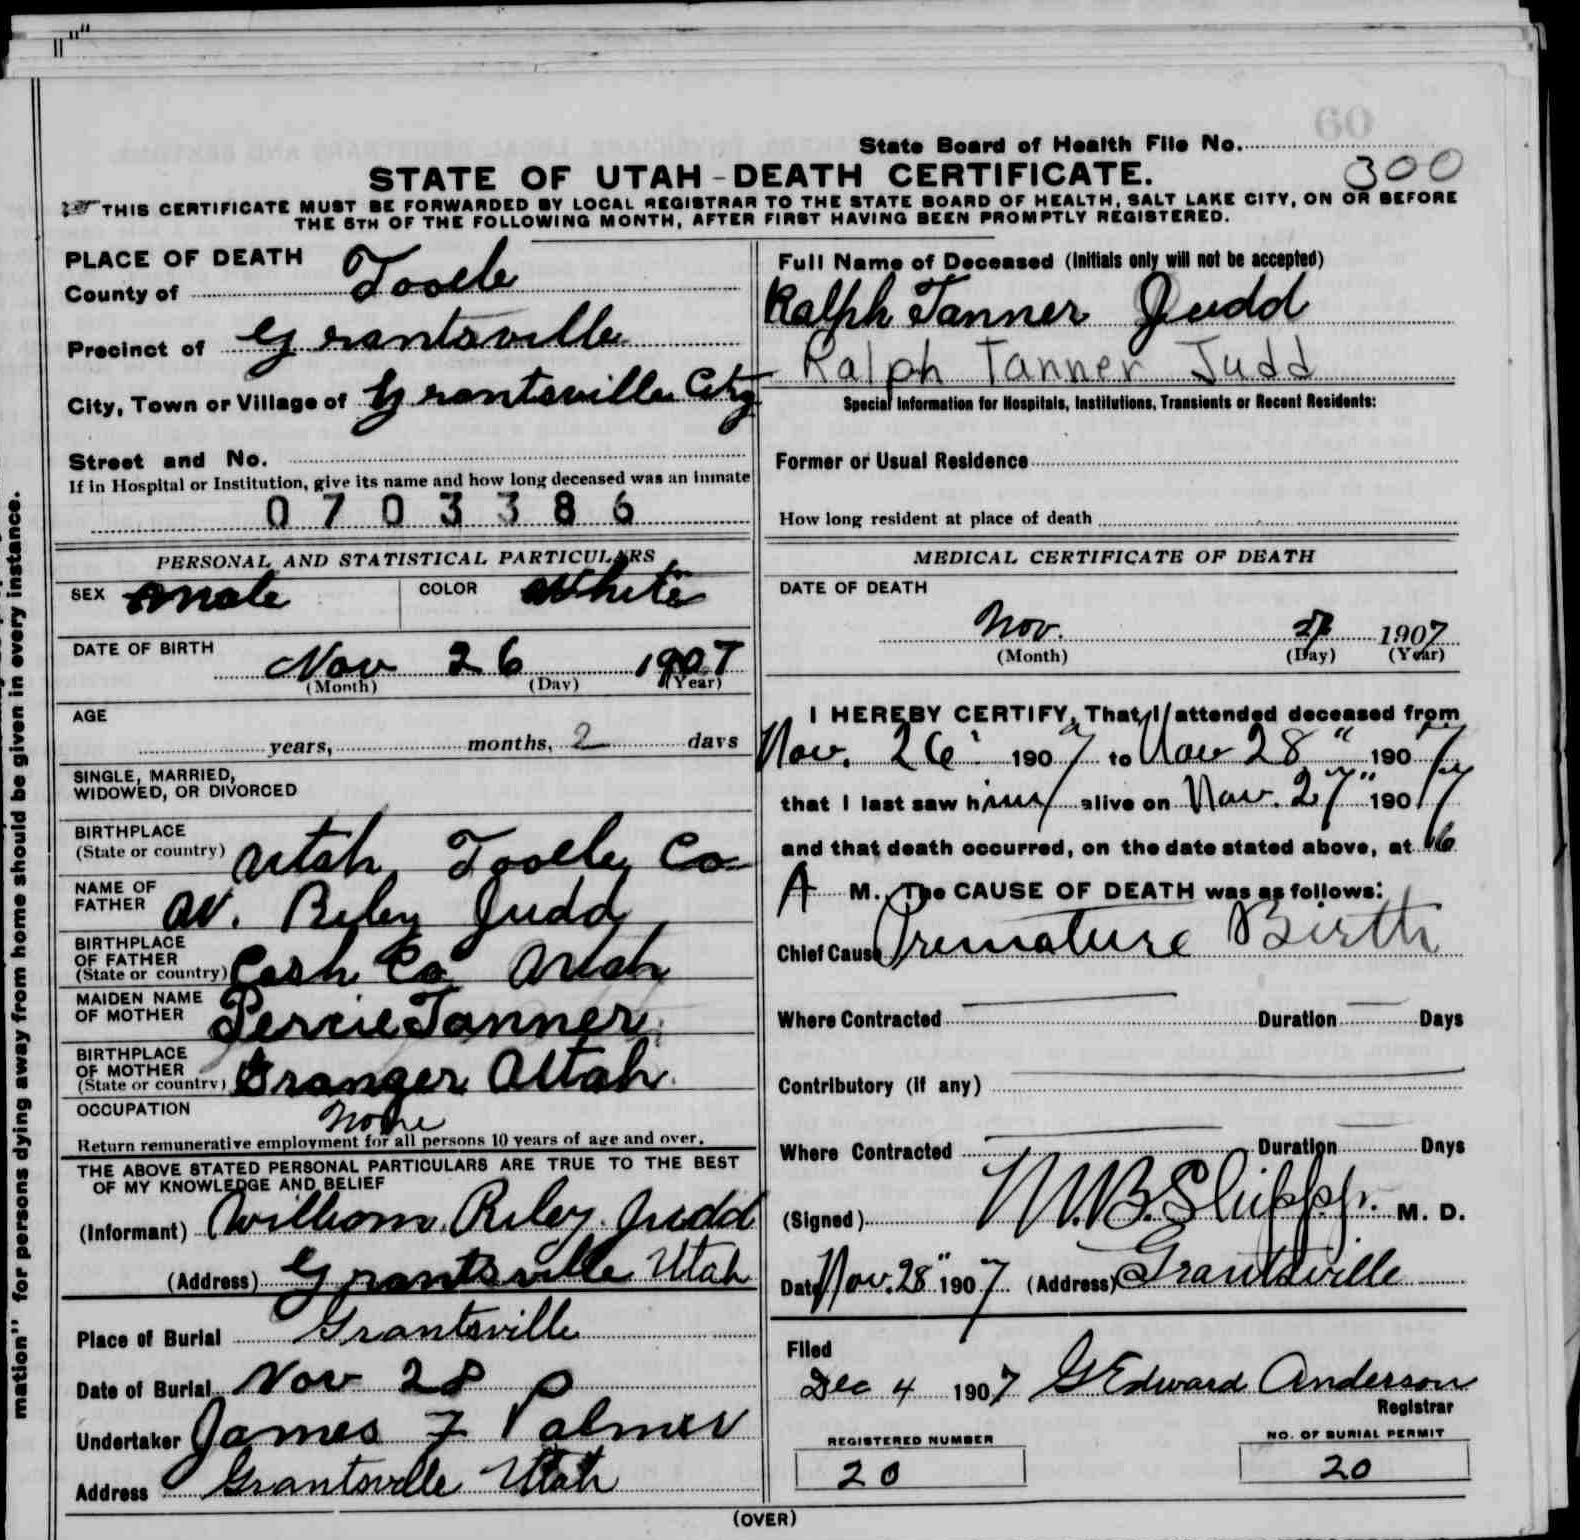 mation" for persons dying away from home should be given in every instance.
State Board of Health File No.
300
STATE OF UTAH - DEATH CERTIFICATE.
THIS CERTIFICATE MUST BE FORWARDED BY LOCAL REGISTRAR TO THE STATE BOARD OF HEALTH, SALT LAKE CITY, ON OR BEFORE
THE 5TH OF THE FOLLOWING MONTH, AFTER FIRST HAVING BEEN PROMPTLY REGISTERED.
PLACE OF DEATH
County of Tooele
Precinct of Grantsville
City, Town or Village of Grantsville City
Street and No.
If in Hospital or Institution, give its name and how long deceased was an inmate
0703386
PERSONAL AND STATISTICAL PARTICULARS
SEX male COLOR White
DATE OF BIRTH
Nov 26 1907
(Month) (Day) (Year)
AGE
years, months, 2 days
SINGLE, MARRIED,
WIDOWED, OR DIVORCED
BIRTHPLACE
(State or country) Utah Tooele Co
NAME OF
FATHER W. Riley Judd
BIRTHPLACE
OF FATHER
(State or country) Cash Co Utah
MAIDEN NAME
OF MOTHER Percie Tanner
BIRTHPLACE
OF MOTHER
(State or country) Granger Utah
OCCUPATION
None
Return remunerative employment for all persons 10 years of age and over.
THE ABOVE STATED PERSONAL PARTICULARS ARE TRUE TO THE BEST
OF MY KNOWLEDGE AND BELIEF
(Informant) William Riley Judd
(Address) Grantsville Utah
Place of Burial Grantsville
Date of Burial Nov 28
Undertaker James F Palmer
Address Grantsville Utah
Full Name of Deceased (Initials only will not be accepted)
Ralph Tanner Judd
Ralph Tanner Judd
Special Information for Hospitals, Institutions, Transients or Recent Residents:
Former or Usual Residence
How long resident at place of death
MEDICAL CERTIFICATE OF DEATH
DATE OF DEATH
Nov. 1907
(Month) (Day) (Year)
I HEREBY CERTIFY, That I attended deceased from
Nov. 26 1907 to Nov 28" 1907
that I last saw him alive on Nov. 27" 1907
and that death occurred, on the date stated above, at 6
A M. The CAUSE OF DEATH was as follows:
Chief Cause Premature Birth
Where Contracted Duration Days
Contributory (if any)
Where Contracted Duration Days
(Signed) M. D.
Date Nov. 28" 1907 (Address) Grantsville
Filed
Dec 4 1907 G Edward Anderson
Registrar
REGISTERED NUMBER
20
NO. OF BURIAL PERMIT
20
(OVER)